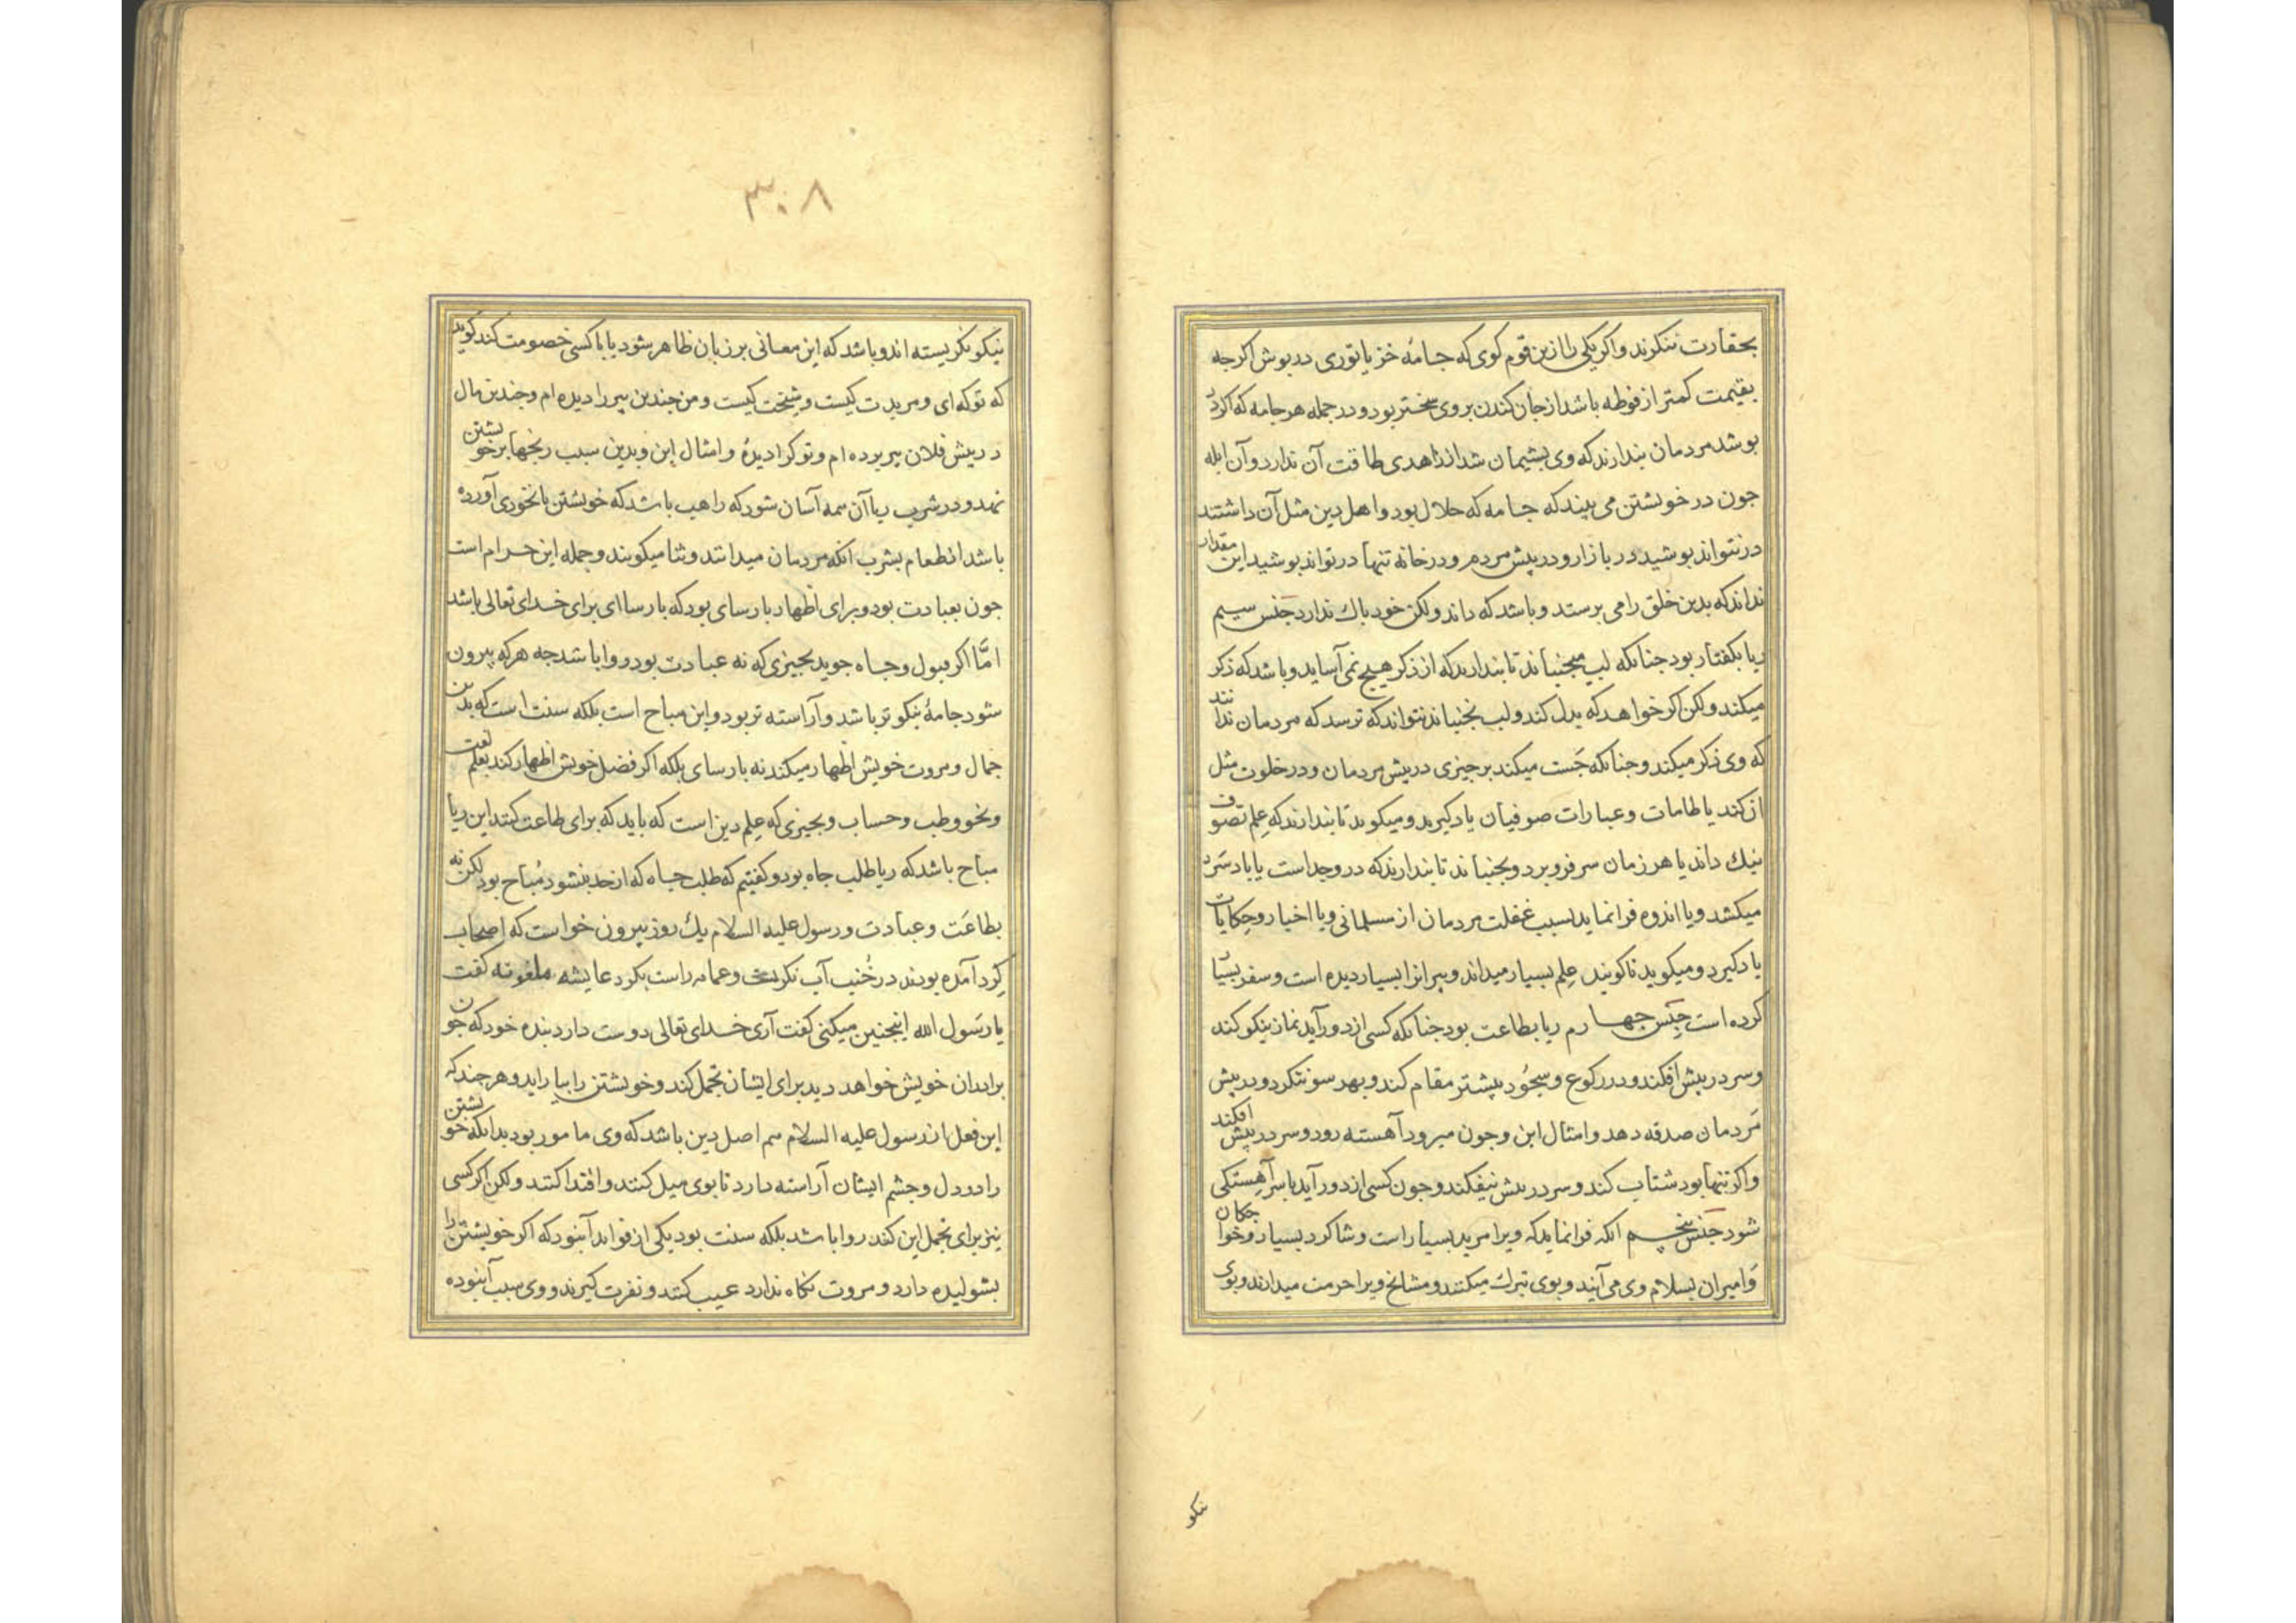 بحقارت ننکرند واکر یکی را ازین قوم کوی که جامهٔ خز یا توزی در بوش اکرجه
بقیمت کمتر از فوطه باشد از جان کندن بر وی سختر بود و در جمله هر جامه که اکر در
بوشد مردمان بندارند که وی بشیمان شد از زاهدی طاقت آن ندارد و آن ابله
جون در خویشتن می بیند که جامه که حلال بود و اهل دین مثل آن داشتند
در نتواند بوشید در بازار و در بیش مردم و در خانه تنها در تواند بوشید این مقدار
نداند که بدین خلق را می برستد و باشد که داند ولکن خود باک ندارد جنس سیم
ریا بکفتار بود جنانکه لب میجنباند تا بندارند که از ذکر هیچ نمی آساید و باشد که ذکر
میکند ولکن اکر خواهد که بدل کند و لب نجنباند نتواند که ترسد که مردمان ندانند
که وی ذکر میکند و جنانکه جست میکند بر جیزی در بیش مردمان و در خلوت مثل
ان نکند یا طامات و عبارات صوفیان یاد کیرد و میکوید تا بندارند که علم تصوف
نیک داند یا هر زمان سر فرو برد و بجنباند تا بندارند که در وجد است یا باد سرد
میکشد ویا اندوه فرا نماید بسبب غفلت مردمان از مسلمانی ویا اخبار و حکایات
یاد کیرد و میکوید تا کویند علم بسیار میداند و پیرانرا بسیار دیده است و سفر بسیار
کرده است جنس جهارم ریا بطاعت بود جنانکه کسی از دور آید نماز نیکو کند
وسر در بیش افکند و در رکوع و سجود بیشتر مقام کند و بهر سو ننکرد و در بیش
مردمان صدقه دهد و امثال این و جون میرود آهسته رود و سر در بیش افکند
واکر تنها بود شتاب کند و سر در بیش نیفکند و جون کسی از دور آید با سر آهستکی
شود جنس پنجم انکه فرا نماید که ویرا مرید بسیار است و شاکرد بسیار و خواجکان
وامیران بسلام وی می آیند و بوی تبرک میکنند و مشایخ ویرا حرمت میدارند و بوی
نیکو
۳۰۸
نیکو نکریسته اند و باشد که این معانی بر زبان ظاهر شود یا با کسی خصومت کند کوید
که تو که ای و مریدت کیست و شیخت کیست و من جندین پیر را دیده ام و جندین مال
در بیش فلان پیر برده ام و تو کرا دیدهٔ و امثال این و بدین سبب رنجها بر خویشتن
نهد و در شرب ریا آن همه آسان شود که راهب باشد که خویشتن با نخودی آورده
باشد از طعام بشرب انکه مردمان میدانند و ثنا میکویند و جمله این حرام است
جون بعبادت بود و برای اظهار بارسای بود که بارساای برای خدای تعالی باشد
امّا اکر قبول و جاه جوید بجیزی که نه عبادت بود روا باشد جه هر که بیرون
شود جامهٔ نیکوتر باشد و آراسته تر بود و این مباح است بلکه سنت است که بدین
جمال و مروت خویش اظهار میکند نه بارسای بلکه اکر فضل خویش اظهار کند بعلم لغت
ونحو و طب و حساب و بجیزی که علم دین است که باید که برای طاعت کنند این ریا
مباح باشد که ریا طلب جاه بود و کفتیم که طلب جاه که از حد بنشود مباح بود لکن نه
بطاعت و عبادت و رسول علیه السلام یک روز بیرون خواست که اصحاب
کرد آمده بودند در خُنب آب نکریست و عمامه راست بکرد عایشه کفت
یا رسول الله اینجنین میکنی کفت آری خدای تعالی دوست دارد بنده خود که جون
برادران خویش خواهد دید برای ایشان تجمل کند و خویشتن را بیاراید و هر جند که
این فعل از رسول علیه السلام هم اصل دین باشد که وی مامور بود بدانکه خویشتن
را در دل و جشم ایشان آراسته دارد تا بوی میل کنند و اقتدا کنند ولکن اکر کسی
نیز برای تجمل این کند روا باشد بلکه سنت بود یکی از فواید آنبود که اکر خویشتن را
بشولیده دارد و مروت نکاه ندارد عیب کنند و نفرت کیرند و وی سبب آنبوده